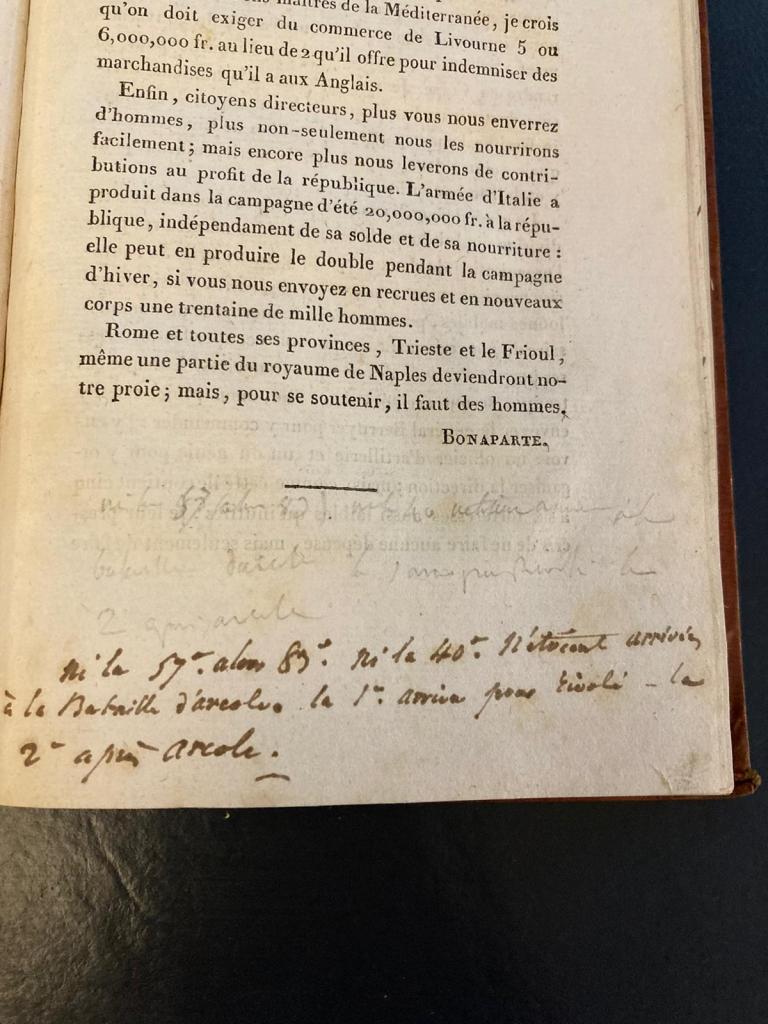 maîtres de la Méditerranée, je crois
qu'on doit exiger du commerce de Livourne 5 ou
6,000,000 fr. au lieu de 2 qu'il offre pour indemniser des
marchandises qu'il a aux Anglais.
Enfin, citoyens directeurs, plus vous nous enverrez
d'hommes, plus non-seulement nous les nourrirons
facilement; mais encore plus nous leverons de contri-
butions au profit de la république. L'armée d'Italie a
produit dans la campagne d'été 20,000,000 fr. à la répu-
blique, indépendament de sa solde et de sa nourriture :
elle peut en produire le double pendant la campagne
d'hiver, si vous nous envoyez en recrues et en nouveaux
corps une trentaine de mille hommes.
Rome et toutes ses provinces, Trieste et le Frioul,
même une partie du royaume de Naples deviendront no-
tre proie; mais, pour se soutenir, il faut des hommes.
BONAPARTE.
ni la 57e. alors 83e. ni la 40e. N'étoient arrivées
à la Bataille d'arcole. la 1re. arriva pour rivoli - la
2e après arcole.